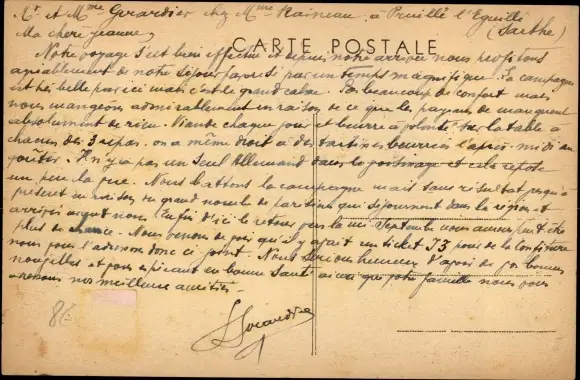 Mr et Mme Girardier chez Mme Raineau à Pruillé l'Eguillé
(Sarthe)
Ma chère Jeanne,
CARTE POSTALE
Notre voyage s'est bien effectué et depuis notre arrivée nous profitons
agréablement de notre séjour favorisé par un temps magnifique. La campagne
est très belle par ici mais c'est le grand calme. Pas beaucoup de confort mais
nous mangeons admirablement en raison de ce que les paysans ne manquent
absolument de rien. Viande chaque jour et beurre à volonté sur la table à
chacun des 3 repas. on a même droit à des tartines beurrées l'après-midi au
goûter. Il n'y a pas un seul Allemand dans le voisinage et cela repose
un peu la vue. Nous battons la campagne mais sans résultat jusqu'à
présent en raison du grand nombre de parisiens qui séjournent dans la région et
arrivés avant nous. Enfin d'ici le retour vers la mi Septembre nous aurons peut être
plus de chance. Nous venons de voir qu'il y avait un ticket J3 pour de la confiture
nous pour l'adresser donc ci joint. Nous serions heureux d'avoir de vos bonnes
nouvelles et vous espérant en bonne santé ainsi que votre famille nous vous
envoyons nos meilleures amitiés.
8€